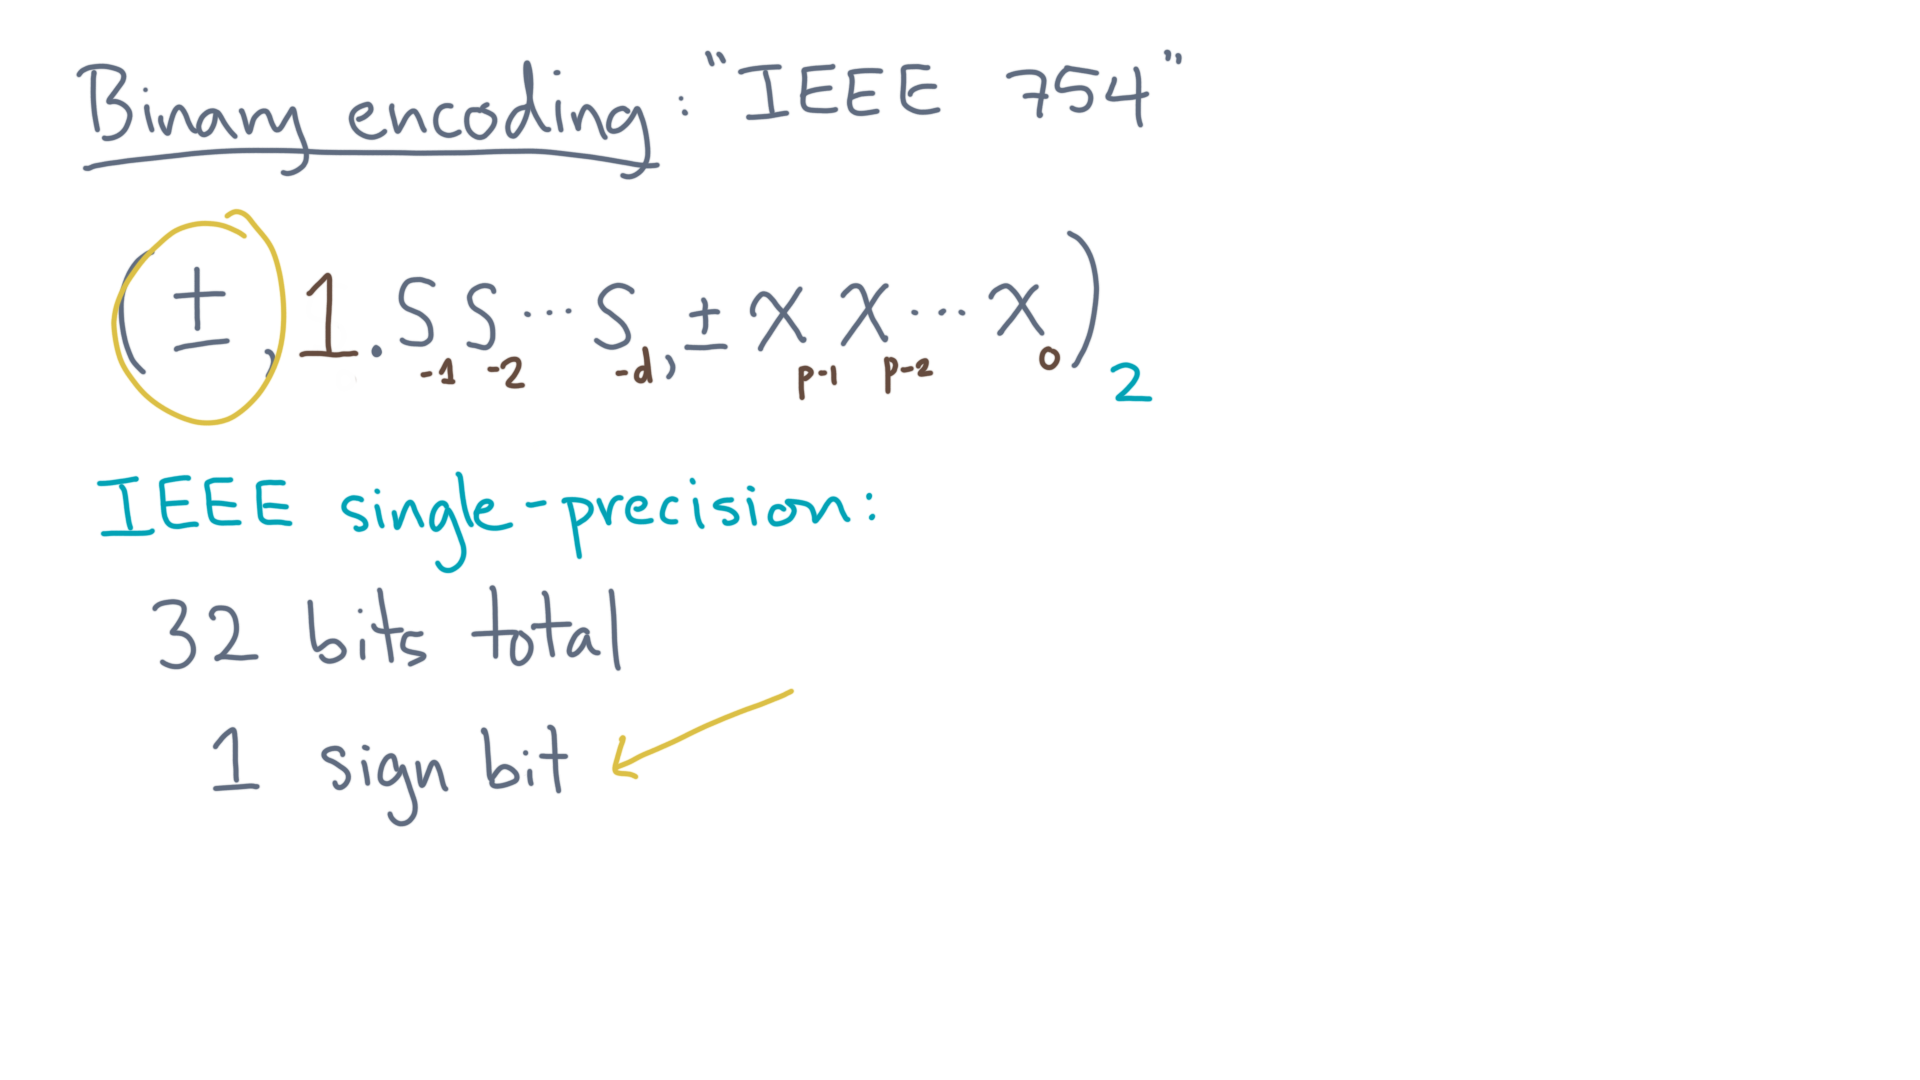 Binary encoding: "IEEE 754"
(±, 1.S₋₁S₋₂⋯S₋d, ±xₚ₋₁xₚ₋₂⋯x₀)₂
IEEE single-precision:
32 bits total
1 sign bit